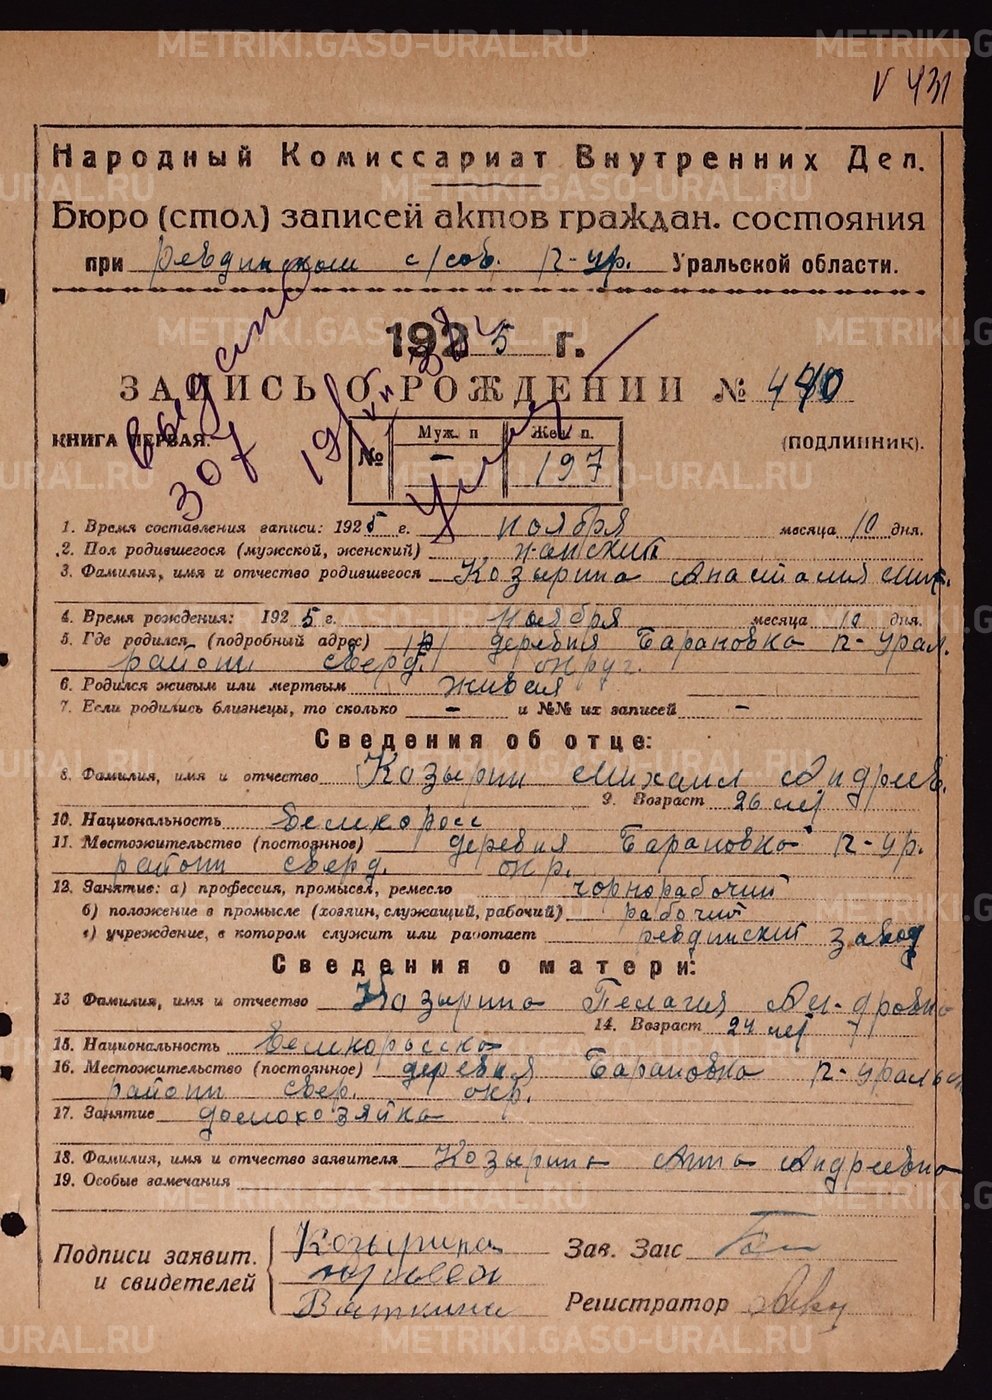 V 431
Народный Комиссариат Внутренних Дел.
Бюро (стол) записей актов граждан. состояния
при Ревдинском с/сов. П-ур. Уральской области.
1925 г.
ЗАПИСЬ О РОЖДЕНИИ № 440
выдано
307
КНИГА ПЕРВАЯ.
(ПОДЛИННИК).
№ Муж. п Жен. п.
– 197
1. Время составления записи: 1925 г. ноября месяца 10 дня.
2. Пол родившегося (мужской, женский) женский
3. Фамилия, имя и отчество родившегося Козырина Анастасия Мих.
4. Время рождения: 1925 г. ноября месяца 10 дня.
5. Где родился, (подробный адрес) деревня Барановка П-урал.
района сверд. округ.
6. Родился живым или мертвым живая
7. Если родились близнецы, то сколько – и №№ их записей –
Сведения об отце:
8. Фамилия, имя и отчество Козырин Михаил Андреев.
9. Возраст 26 лет
10. Национальность великоросс
11. Местожительство (постоянное) деревня Барановка П-ур.
района сверд. окр.
12. Занятие: а) профессия, промысел, ремесло чорнорабочий
б) положение в промысле (хозяин, служащий, рабочий) рабочий
в) учреждение, в котором служит или работает ревдинский завод
Сведения о матери:
13 Фамилия, имя и отчество Козырина Пелагия
14. Возраст 24 лет
15. Национальность великорысска
16. Местожительство (постоянное) деревня Барановка П-уральск
района свер. окр.
17. Занятие домохозяйка
18. Фамилия, имя и отчество заявителя Козырина Анна Андреевна
19. Особые замечания
Подписи заявит.
и свидетелей
Козырина
Вяткина
Зав. Загс
Регистратор
METRIKI.GASO-URAL.RU